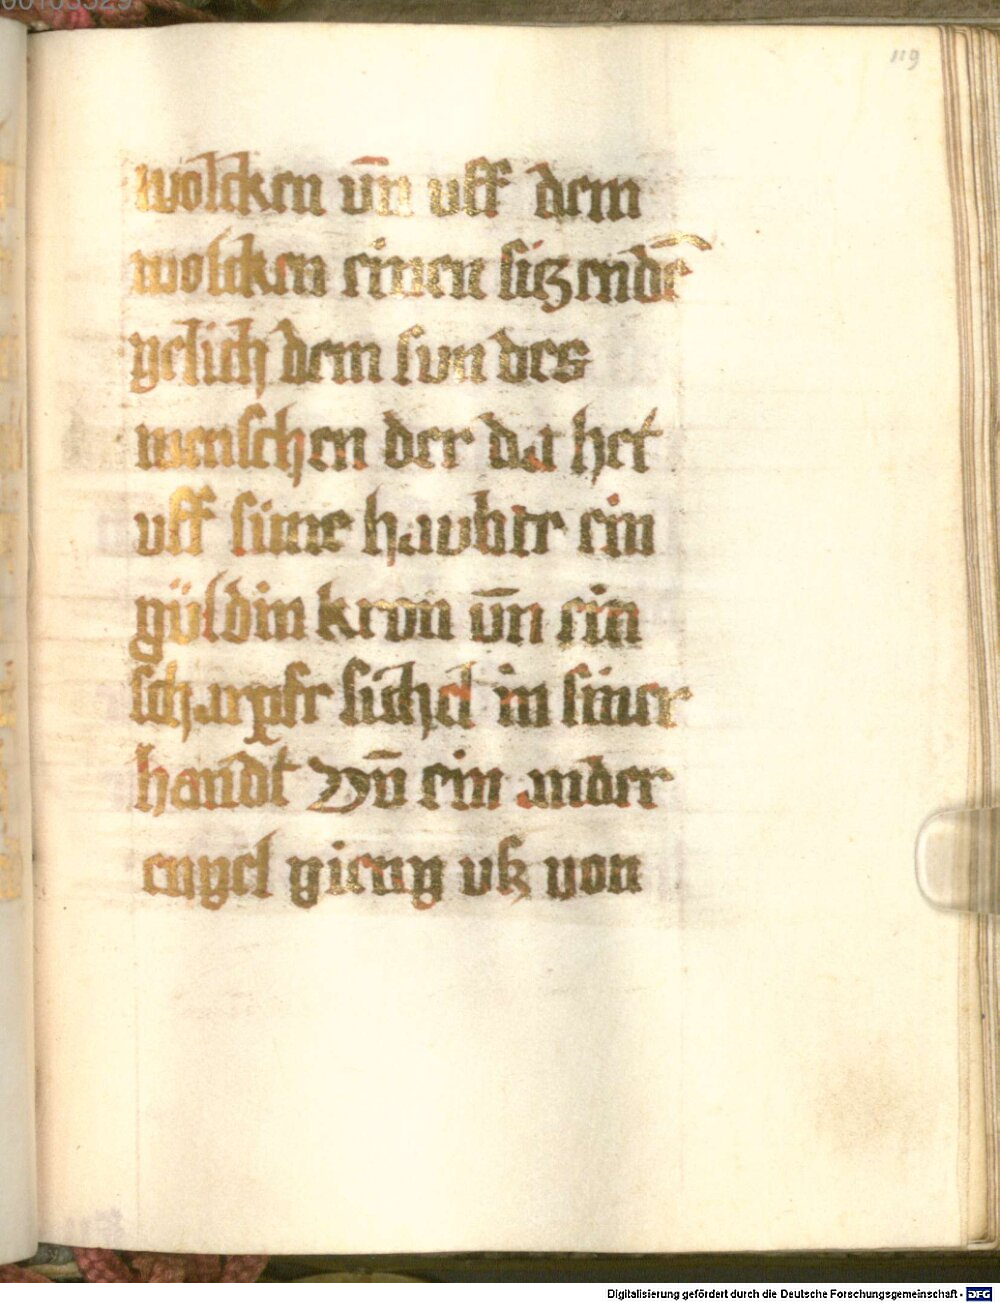 119
wolcken vn̄ uff dem
wolcken einen sitzendē
gelich dem sun des
menschen der da het
uff sime haubte ein
güldin kron vn̄ ein
scharpfe sichel in siner
handt Vn̄ ein ander
engel gieng uß von
Digitalisierung gefördert durch die Deutsche Forschungsgemeinschaft - DFG